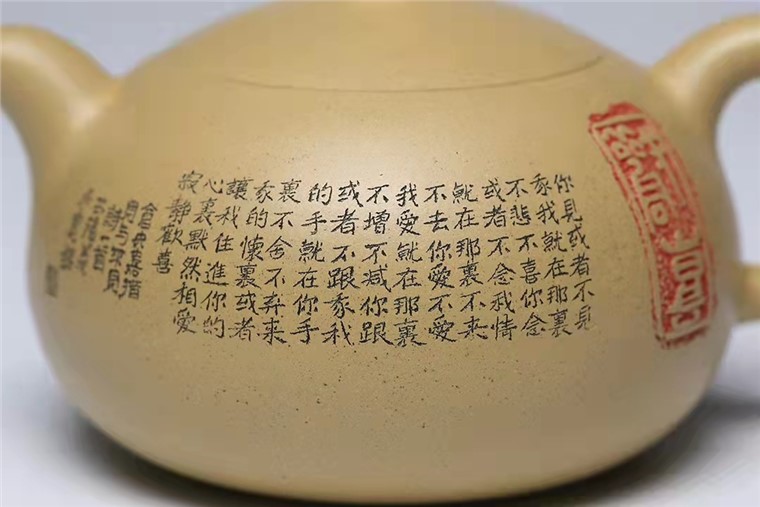 你見或者不見
我我就在那裏
不悲不喜你念
或者不念我情
就在那裏不来
不去你愛不愛
我愛就在那裏
不增不减你跟
或者不跟我我
的手就在你手
裏不舍不弃来
我的懷裏或者
讓我住進你的
心裏默然相愛
寂靜歡喜
倉央嘉措
詩一首